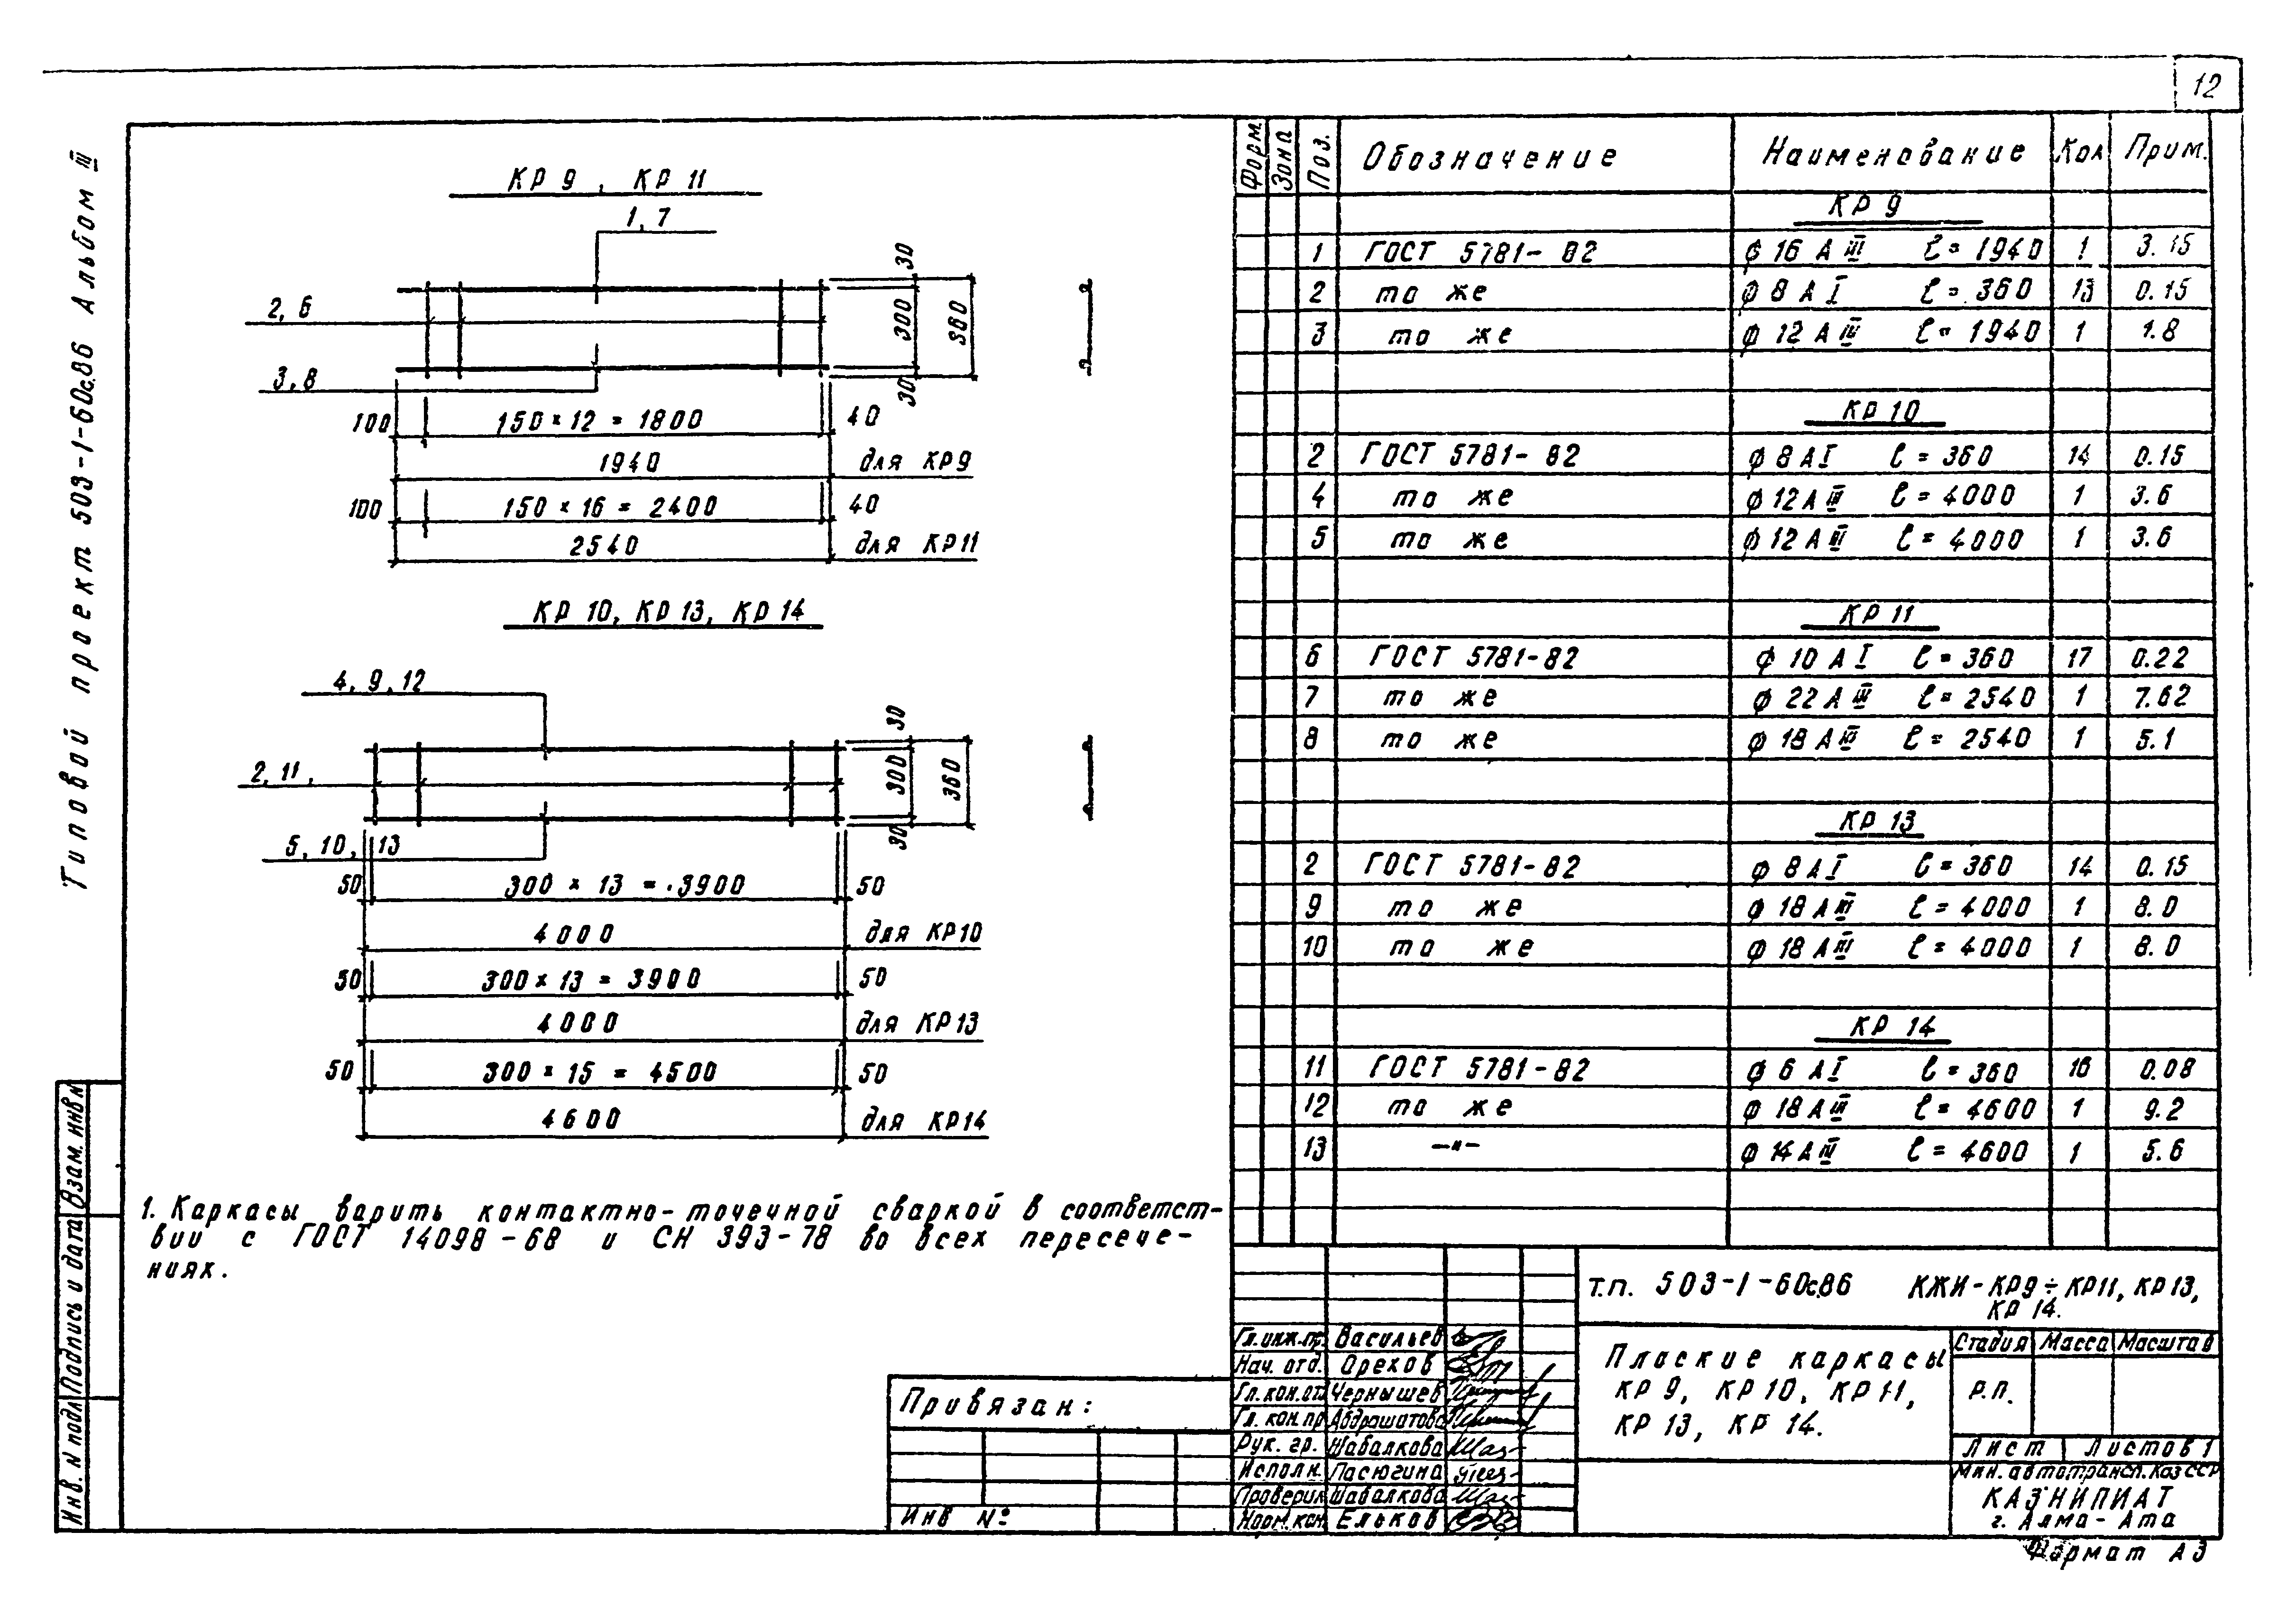 12
Типовой проект 503-1-60с.86 Альбом III
КР 9, КР 11
1, 7
2, 6
3, 8
30
300
30
360
100
150 × 12 = 1800
40
1940
для КР9
100
150 × 16 = 2400
40
2540
для КР11
КР 10, КР 13, КР 14
4, 9, 12
2, 11,
5, 10, 13
30
300
30
360
50
300 × 13 = 3900
50
4000
для КР10
50
300 × 13 = 3900
50
4000
для КР13
50
300 × 15 = 4500
50
4600
для КР14
1. Каркасы варить контактно-точечной сваркой в соответст-
вии с ГОСТ 14098-68 и СН 393-78 во всех пересече-
ниях.
Форм. Зона Поз. Обозначение Наименование Кол Прим.
КР 9
1 ГОСТ 5781-82 ф 16 А III ℓ = 1940 1 3.15
2 то же ф 8 А I ℓ = 360 13 0.15
3 то же ф 12 А III ℓ = 1940 1 1.8
КР 10
2 ГОСТ 5781-82 ф 8 А I ℓ = 360 14 0.15
4 то же ф 12 А III ℓ = 4000 1 3.6
5 то же ф 12 А III ℓ = 4000 1 3.6
КР 11
6 ГОСТ 5781-82 ф 10 А I ℓ = 360 17 0.22
7 то же ф 22 А III ℓ = 2540 1 7.62
8 то же ф 18 А III ℓ = 2540 1 5.1
КР 13
2 ГОСТ 5781-82 ф 8 А I ℓ = 360 14 0.15
9 то же ф 18 А III ℓ = 4000 1 8.0
10 то же ф 18 А III ℓ = 4000 1 8.0
КР 14
11 ГОСТ 5781-82 ф 6 А I ℓ = 360 16 0.08
12 то же ф 18 А III ℓ = 4600 1 9.2
13 —"— ф 14 А III ℓ = 4600 1 5.6
Т.п. 503-1-60с.86 КЖИ-КР9÷КР11, КР13,
КР 14.
Гл.инж.пр. Васильев
Нач. отд. Орехов
Гл.кон.от. Чернышев
Гл. кон.пр Абдрашитова
Рук. гр. Шабалкова
Исполн. Пасюгина
Проверил Шабалкова
Норм.кон. Ельков
Плоские каркасы
КР 9, КР 10, КР 11,
КР 13, КР 14.
Стадия Масса Масштаб
Р.П.
Лист Листов 1
Мин. автотрансп. КазССР
КАЗНИПИАТ
г. Алма-Ата
Формат А3
Привязан:
Инв №
Взам. инв.н
Подпись и дата
Инв. N подл.